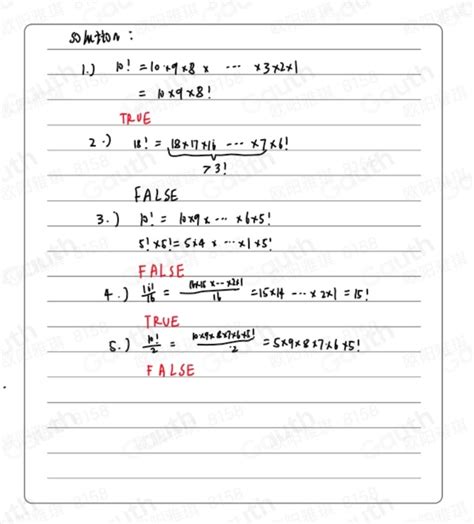 solution :
1.) 10! = 10×9×8× ··· ×3×2×1
= 10×9×8!
TRUE
2.) 18! = 18×17×16 ··· ×7×6!
>3!
FALSE
3.) 10! = 10×9× ··· ×6×5!
5!×5! = 5×4 × ··· ×1×5!
FALSE
4.) 16!/16 = 16×15×···×2×1/16 = 15×14 ··· × 2×1 = 15!
TRUE
5.) 10!/2 = 10×9×8×7×6×5!/2 = 5×9×8×7×6×5!
FALSE